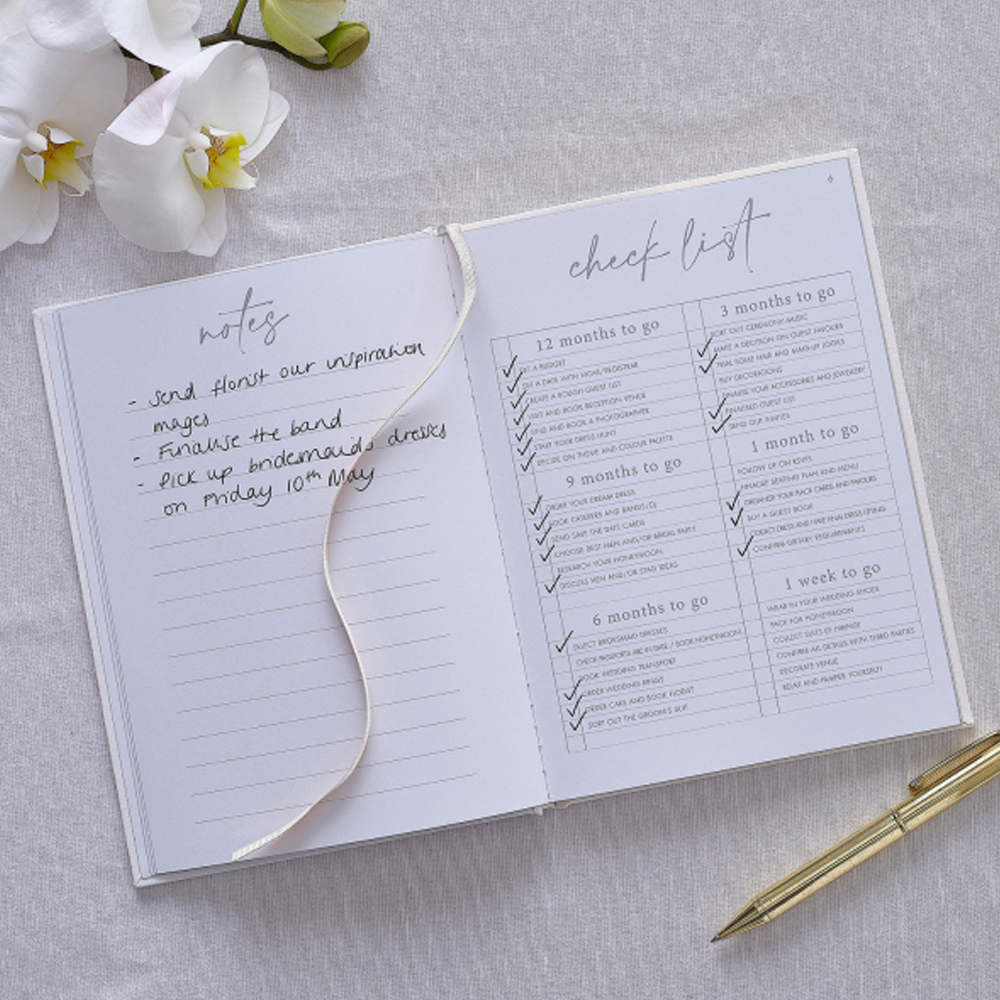 notes
- Send florist our inspiration
mages
- Finalise the band
- Pick up bridesmaids dresses
on Friday 10th May
6
check list
12 months to go
SET A BUDGET
SET A DATE WITH VICAR/REGISTRAR
CREATE A ROUGH GUEST LIST
VISIT AND BOOK RECEPTION VENUE
FIND AND BOOK A PHOTOGRAPHER
START YOUR DRESS HUNT
DECIDE ON THEME AND COLOUR PALETTE
9 months to go
ORDER YOUR DREAM DRESS
BOOK CATERERS AND BAND/DJ
SEND SAVE THE DATE CARDS
CHOOSE BEST MEN AND/OR BRIDAL PARTY
RESEARCH YOUR HONEYMOON
DISCUSS HEN AND/OR STAG IDEAS
6 months to go
SELECT BRIDESMAID DRESSES
CHECK PASSPORTS ARE IN DATE / BOOK HONEYMOON
BOOK WEDDING TRANSPORT
ORDER WEDDING RINGS
ORDER CAKE AND BOOK FLORIST
SORT OUT THE GROOM'S SUIT
3 months to go
SORT OUT CEREMONY MUSIC
MAKE A DECISION ON GUEST FAVOURS
TRIAL SOME HAIR AND MAKE-UP LOOKS
BUY DECORATIONS
FINALISE YOUR ACCESSORIES AND JEWELLERY
FINALISED GUEST LIST
SEND OUT INVITES
1 month to go
FOLLOW UP ON RSVPS
FINALISE SEATING PLAN AND MENU
ORGANISE YOUR PLACE CARDS AND FAVOURS
BUY A GUEST BOOK
COLLECT DRESS AND HAVE FINAL DRESS FITTING
CONFIRM DIETARY REQUIREMENTS
1 week to go
WEAR IN YOUR WEDDING SHOES
PACK FOR HONEYMOON
COLLECT SUITS IF HIRING
CONFIRM ALL DETAILS WITH THIRD PARTIES
DECORATE VENUE
RELAX AND PAMPER YOURSELF